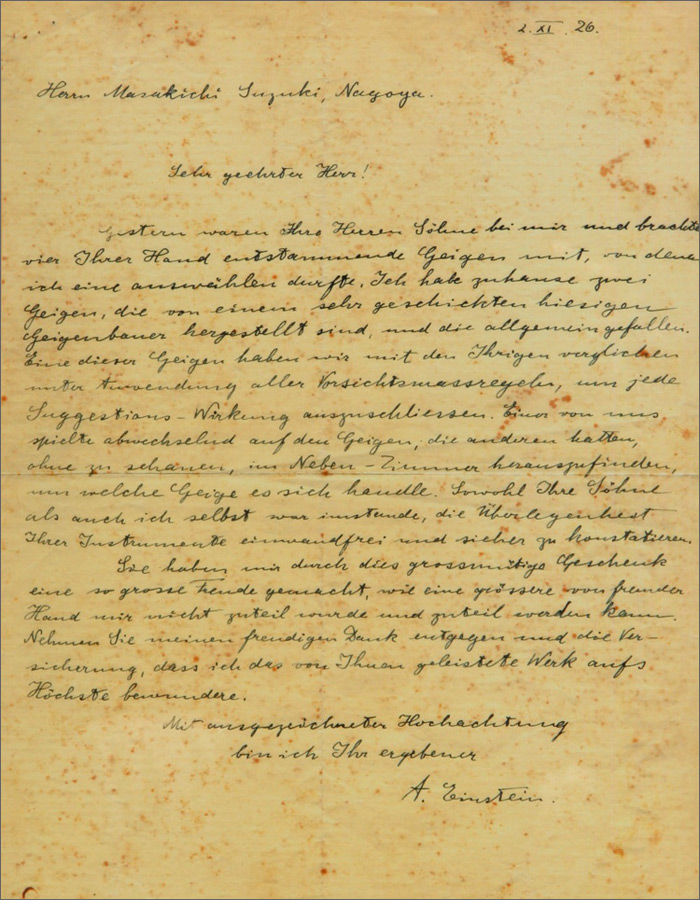 2. XI. 26.
Herrn Masakichi Suzuki, Nagoya.
Sehr geehrter Herr!
Gestern waren Ihre Herren Söhne bei mir und brachte
vier Ihrer Hand entstammende Geigen mit, von dene
ich eine auswählen durfte. Ich habe zuhause zwei
Geigen, die von einem sehr geschickten hiesigen
Geigenbauer hergestellt sind, und die allgemein gefallen.
Eine dieser Geigen haben wir mit den Ihrigen verglichen
unter Anwendung aller Vorsichtsmassregeln, um jede
Suggestions-Wirkung auszuschliessen. Einer von uns
spielte abwechselnd auf den Geigen, die anderen hatten,
ohne zu schauen, im Neben-Zimmer herauszufinden,
um welche Geige es sich handle. Sowohl Ihre Söhne
als auch ich selbst war imstande, die Überlegenheit
Ihrer Instrumente einwandfrei und sicher zu konstatieren.
Sie haben mir durch dies grossmütige Geschenk
eine so grosse Freude gemacht, wie eine grössere von fremder
Hand mir nicht zuteil wurde und zuteil werden kann.
Nehmen Sie meinen freudigen Dank entgegen und die Ver-
sicherung, dass ich das von Ihnen geleistete Werk aufs
Höchste bewundere.
Mit ausgezeichneter Hochachtung
bin ich Ihr ergebener
A. Einstein.